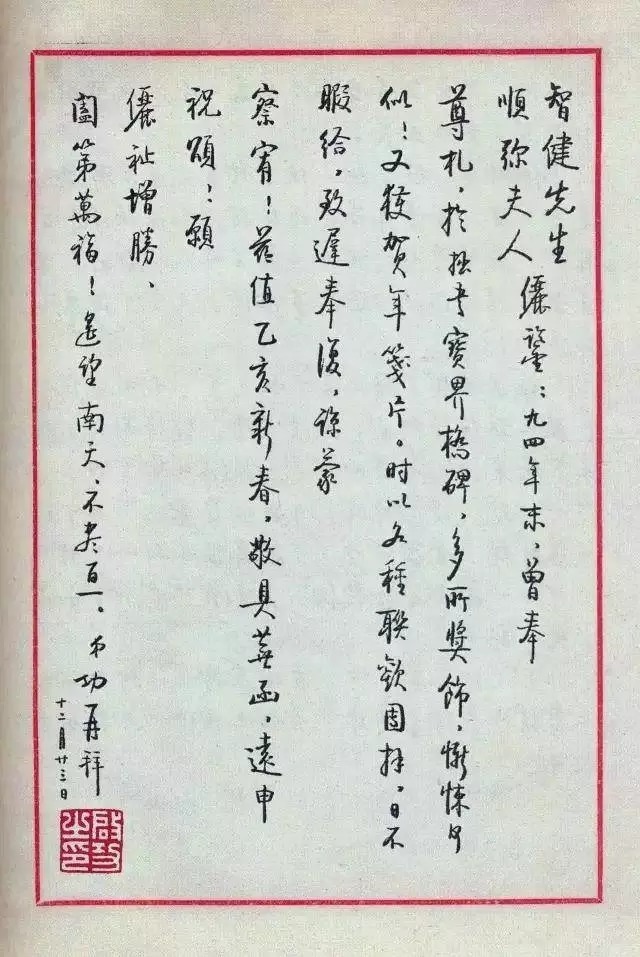 智健先生
順弥夫人
儷鑒：九四年末，曾奉
尊札，於拙書寶界橋碑，多所獎飾，慚悚曷
似！又獲賀年箋片。时以各種聯歡團拜，日不
暇給，致遲奉復，諒蒙
察宥！茲值乙亥新春，敬具蕪函，遠申
祝頌！願
儷祉增勝、
闔第萬福！遙望南天、不盡百一。弟功再拜
十二月廿三日
啟功之印